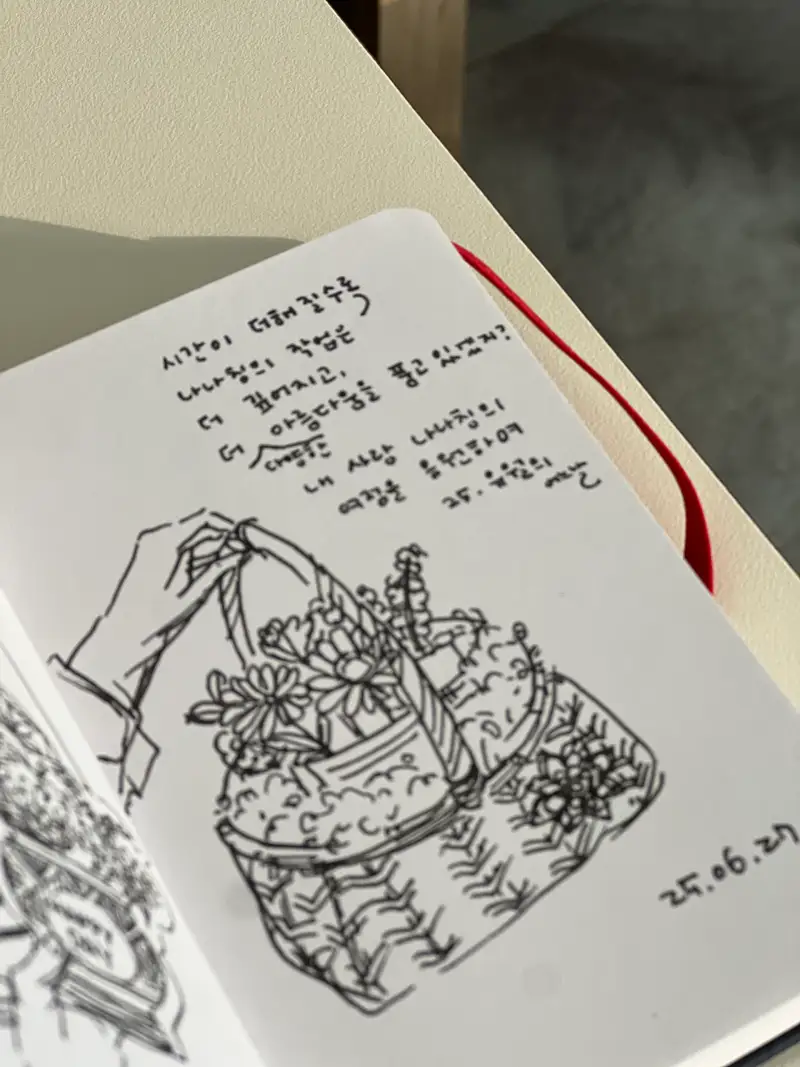 시간이 더해질수록
나나랑의 작업은
더 깊어지고,
더 아름다움을 품고 있겠지?
대담한
내 사랑 나나침의
여정을 응원하며
25. 유월의 어느날
25.06.27